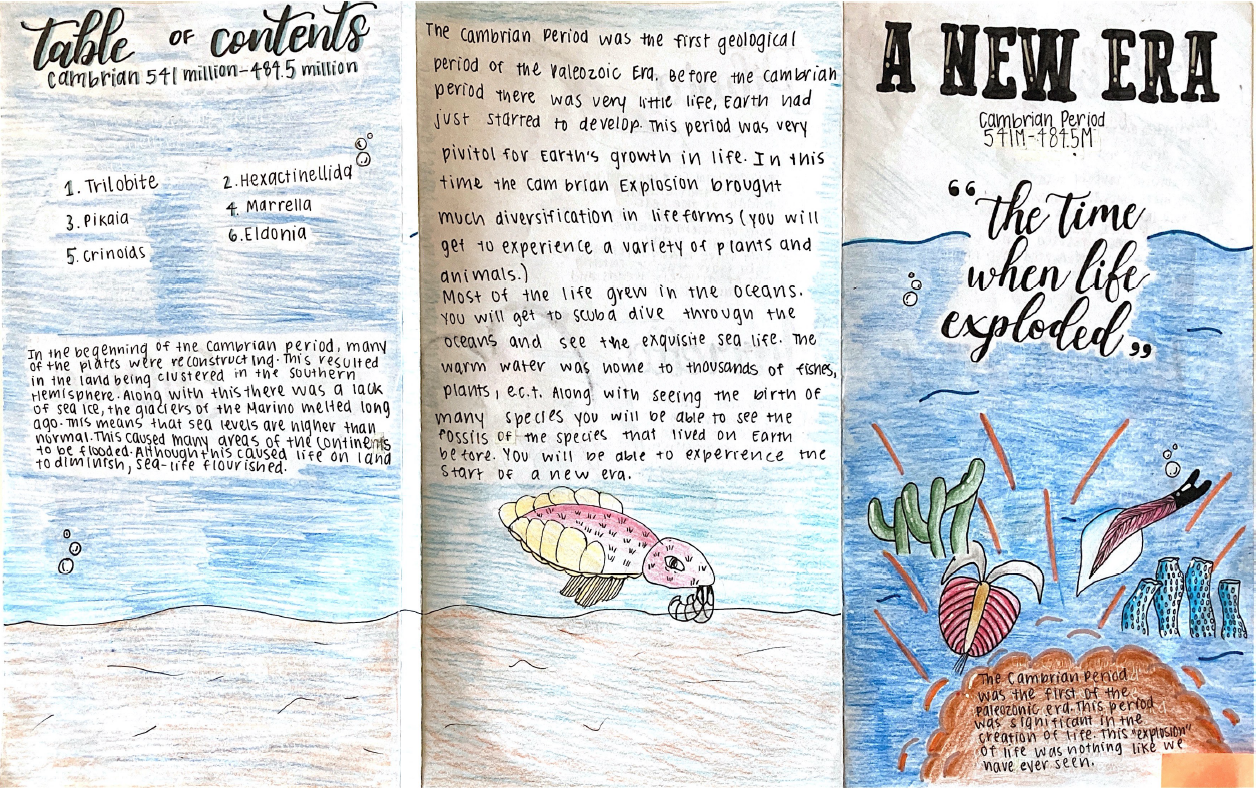 table of contents
Cambrian 541 million-484.5 million
1. Trilobite
2. Hexactinellida
3. Pikaia
4. Marrella
5. Crinoids
6. Eldonia
In the begenning of the Cambrian period, many
of the plates were reconstructing. This resulted
in the land being clustered in the southern
Hemisphere. Along with this there was a lack
of sea ice, the glaciers of the Marino melted long
ago. This means that sea levels are higher than
normal. This caused many areas of the continents
to be flooded. Although this caused life on land
to diminish, sea-life flourished.
The Cambrian Period was the first geological
period of the Paleozoic Era. Before the Cambrian
period there was very little life, Earth had
just started to develop. This period was very
pivitol for Earth's growth in life. In this
time the Cambrian Explosion brought
much diversification in lifeforms (you will
get to experience a variety of plants and
animals.)
Most of the life grew in the oceans.
You will get to scuba dive through the
oceans and see the exquisite sea life. The
warm water was home to thousands of fishes,
plants, e.c.t. Along with seeing the birth of
many species you will be able to see the
fossils of the species that lived on Earth
before. You will be able to experience the
start of a new era.
A NEW ERA
Cambrian Period
541M-484.5M
"the time
when life
exploded"
The Cambrian Period
was the first of the
Paleozonic era. This period
was significant in the
creation of life. This "explosion"
of life was nothing like we
have ever seen.